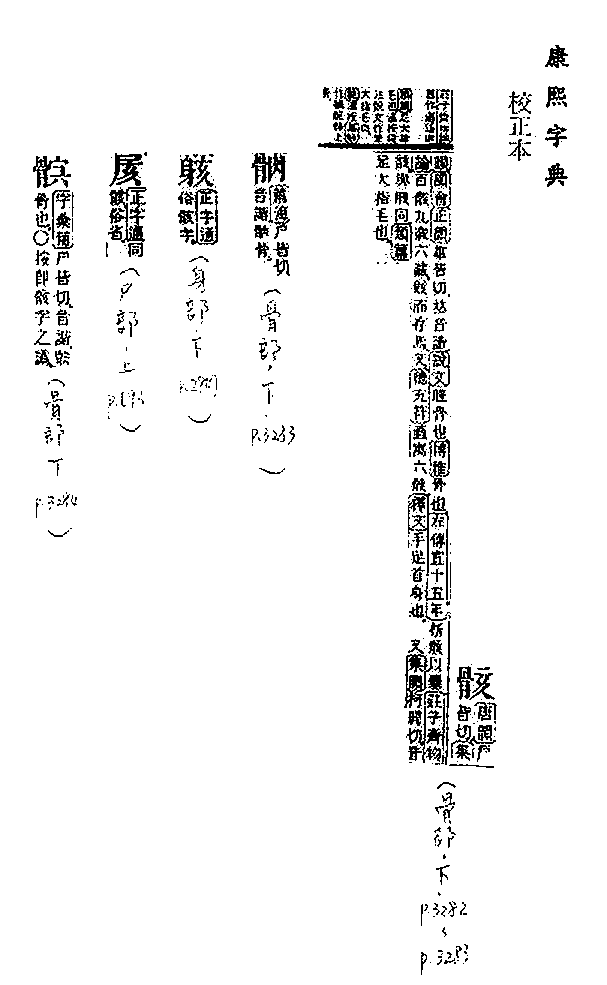 康熙字典
校正本
骸 唐韻戶
皆切集
韻韻會正韻雄皆切𠀤音諧說文脛骨也博雅骨也左傳宣十五年析骸以爨莊子齊物
論百骸九竅六藏賅而存焉又德充符直寓六骸釋文手足首身也 又集韻柯開切音
該與胲同類篇
足大指毛也
(骨部.下.p.3282~p.3283)
戶皆切
音諧骸骨
(骨部.下.p.3283)
正字通
俗骸字
(身部.下
正字通同
骸俗省
(尸部.上
字彙補戶皆切音諧骸
骨也○按卽骸字之譌
(骨部下